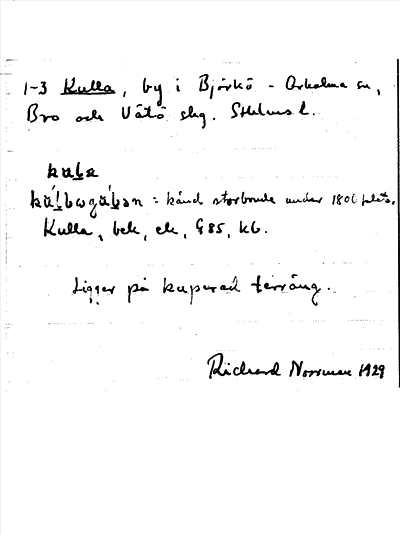 1-3 Kulla, by i Björkö - Arholma sn,
Bro och Vätö slg. Sthlms l.
känd storbonde under 1800 talet.
Kulla, bek, ek, G85, kb.
Ligger på kuperad terräng.
Richard Norrman 1929